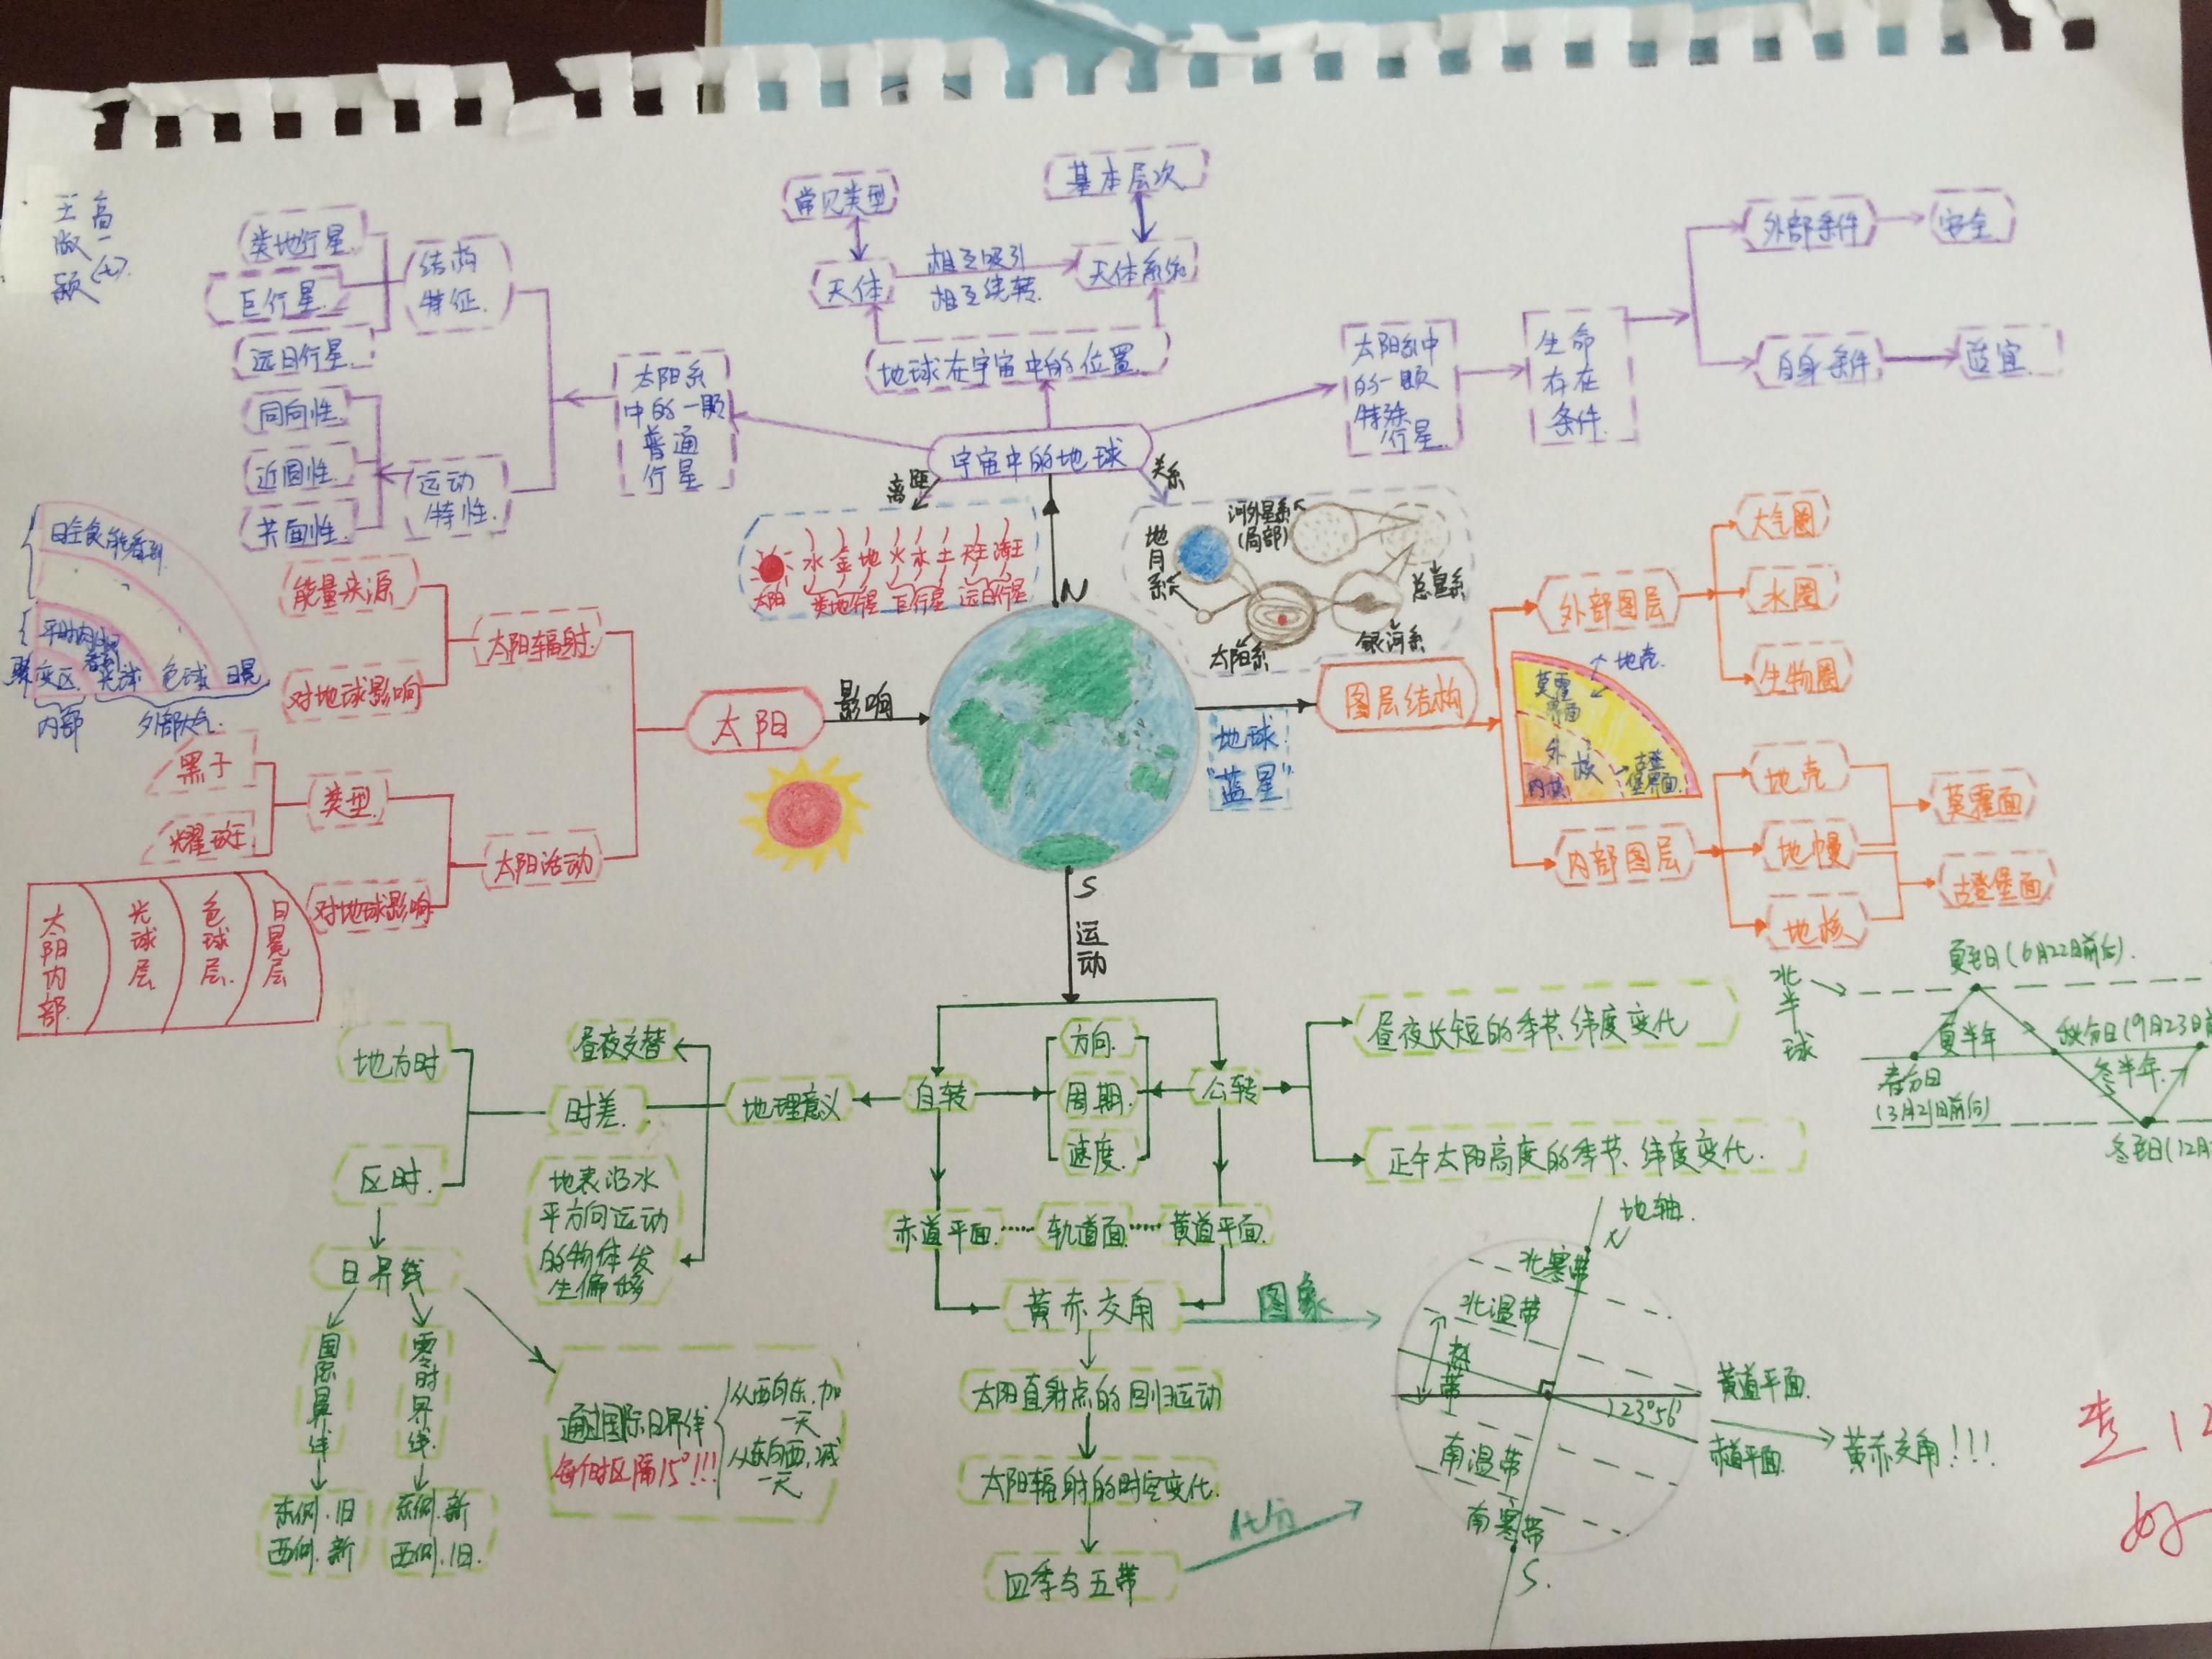 高一(七).
常见类型
基本层次
天体
相互吸引
相互绕转
天体系统
地球在宇宙中的位置
宇宙中的地球
类地行星
巨行星
远日行星
结构
特征
同向性
近圆性
共面性
运动
特性
太阳系
中的一颗
普通
行星
太阳系中
的一颗
特殊
行星
生命
存在
条件
外部条件
安全
自身条件
适宜
距离
关系
太阳
水 金 地 火 木 土 天王 海王
类地行星 巨行星 远日行星
地月系
河外星系
(局部)
总星系
太阳系
银河系
日全食能看到
聚变区
光球
色球
日冕
内部
外部大气
能量来源
对地球影响
太阳辐射
太阳
影响
黑子
耀斑
类型
对地球影响
太阳活动
太阳内部
光球层
色球层
日冕层
N
S
地球
"蓝星"
圈层结构
外部圈层
大气圈
水圈
生物圈
地壳
莫霍
界面
外核
内核
古登
堡界面
内部圈层
地壳
地幔
地核
莫霍面
古登堡面
运动
自转
公转
方向
周期
速度
地理意义
昼夜交替
时差
地方时
区时
地表沿水
平方向运动
的物体发
生偏移
日界线
国际日界线
零时界线
东侧.旧
西侧.新
东侧.新
西侧.旧.
通过国际日界线
从西向东,加
一天
从东向西,减
一天
每个时区隔15°!!!
昼夜长短的季节、纬度变化
正午太阳高度的季节、纬度变化.
赤道平面……轨道面……黄道平面
黄赤交角
图象
太阳直射点的回归运动
太阳辐射的时空变化
四季与五带
北半球
夏至日(6月22日前后).
夏半年
秋分日(9月23日前
春分日
(3月21日前后)
冬半年
冬至日(12月
地轴
N
北寒带
北温带
热带
南温带
南寒带
S.
23°56'
黄道平面
赤道平面
黄赤交角!!!
好